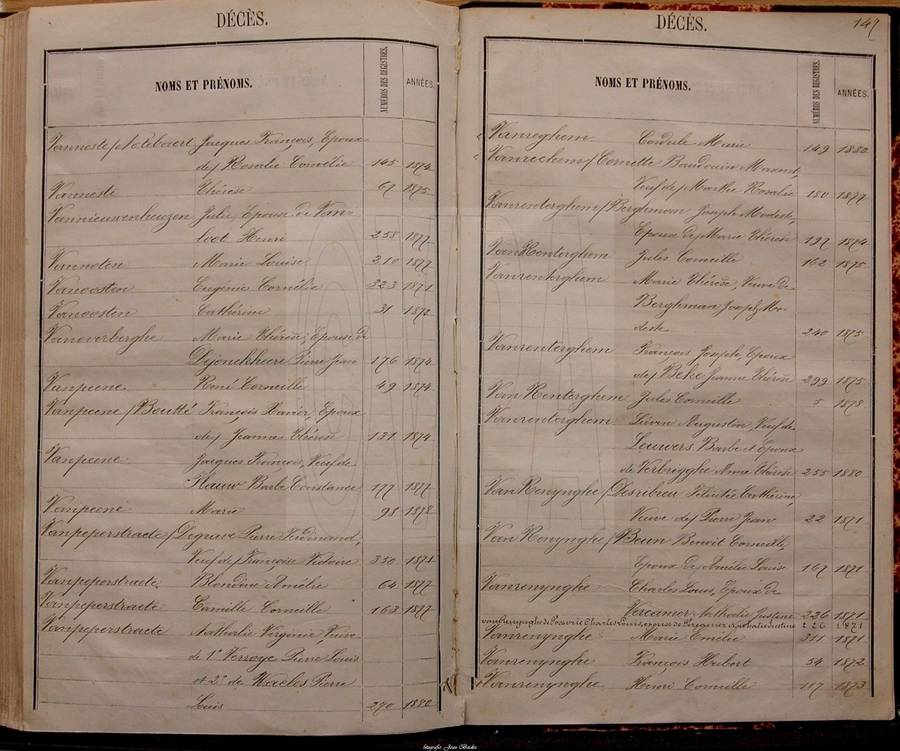 DÉCÈS.
NOMS ET PRÉNOMS. NUMÉROS DES REGISTRES. ANNÉES.
Vanneste / Notebaert Jacques François, Epoux
de / Rosalie Cornélie 145 1874
Vanneste Thérèse 67 1875
Vannieuwenhuyzen Julie, Epouse de Van-
loot Henri 258 1877
Vannoten Marie Louise 210 1877
Vanoosten Eugénie Cornélie 323 1871
Vanoosten Cathérine 31 1872
Vanoverberghe Marie Thérèse, Epouse de
Dejonckheere Pierre Jean 176 1874
Vanpeene René Corneille 49 1874
Vanpeene / Boutté François Xavier, Epoux
de / Jeanne Thérèse 131 1874
Vanpeene Jacques François, Veuf de
Nauw Barbe Constance 177 1877
Vanpeene Marie 98 1878
Vanpeperstraete / Degrave Pierre Ferdinand,
Veuf de / Françoise Victoire 350 1871
Vanpeperstraete Blondine Amélie 64 1877
Vanpeperstraete Camille Corneille 163 1877
Vanpeperstraete Nathalie Virginie Veuve
de 1° Verroye Pierre Louis
et 2° de Waeles Pierre
Louis 270 1880
DÉCÈS. 147
NOMS ET PRÉNOMS. NUMÉROS DES REGISTRES. ANNÉES.
Vanreghem Cordule Marie 149 1880
Vanrechem / Cornette Baudouin
Veuf de / Marthe Rosalie 150 1877
Vanrenterghem / Berghman Joseph Modeste,
Epoux de / Marie Thérèse 197 1874
Van Renterghem Jules Corneille 162 1875
Vanrenterghem Marie Thérèse, Veuve de
Berghman Joseph Mo-
deste 240 1875
Vanrenterghem François Joseph, Epoux
de / Beke Jeanne Thérèse 299 1875
Van Renterghem Jules Corneille 5 1878
Vanrenterghem Liévin Augustin, Veuf de
Leuvers Barbe et Epoux
de Verbrigghe Anne Thérèse 255 1880
Van Renynghe / Desribeu Félicité Cathérine,
Veuve de / Pierre Jean 22 1871
Van Renynghe / Beun Benoit Corneille,
Epoux de / Amélie Louise 167 1871
Vanrenynghe Charles Louis, Epoux de
Vercamer Nathalie Justine 226 1871
Charles Louis, époux de Vercamer Nathalie Justine 226 1871
Vanrenynghe Marie Emélie 311 1871
Vanrenynghe François Hubert 54 1872
Vanrenynghe Henri Corneille 117 1873